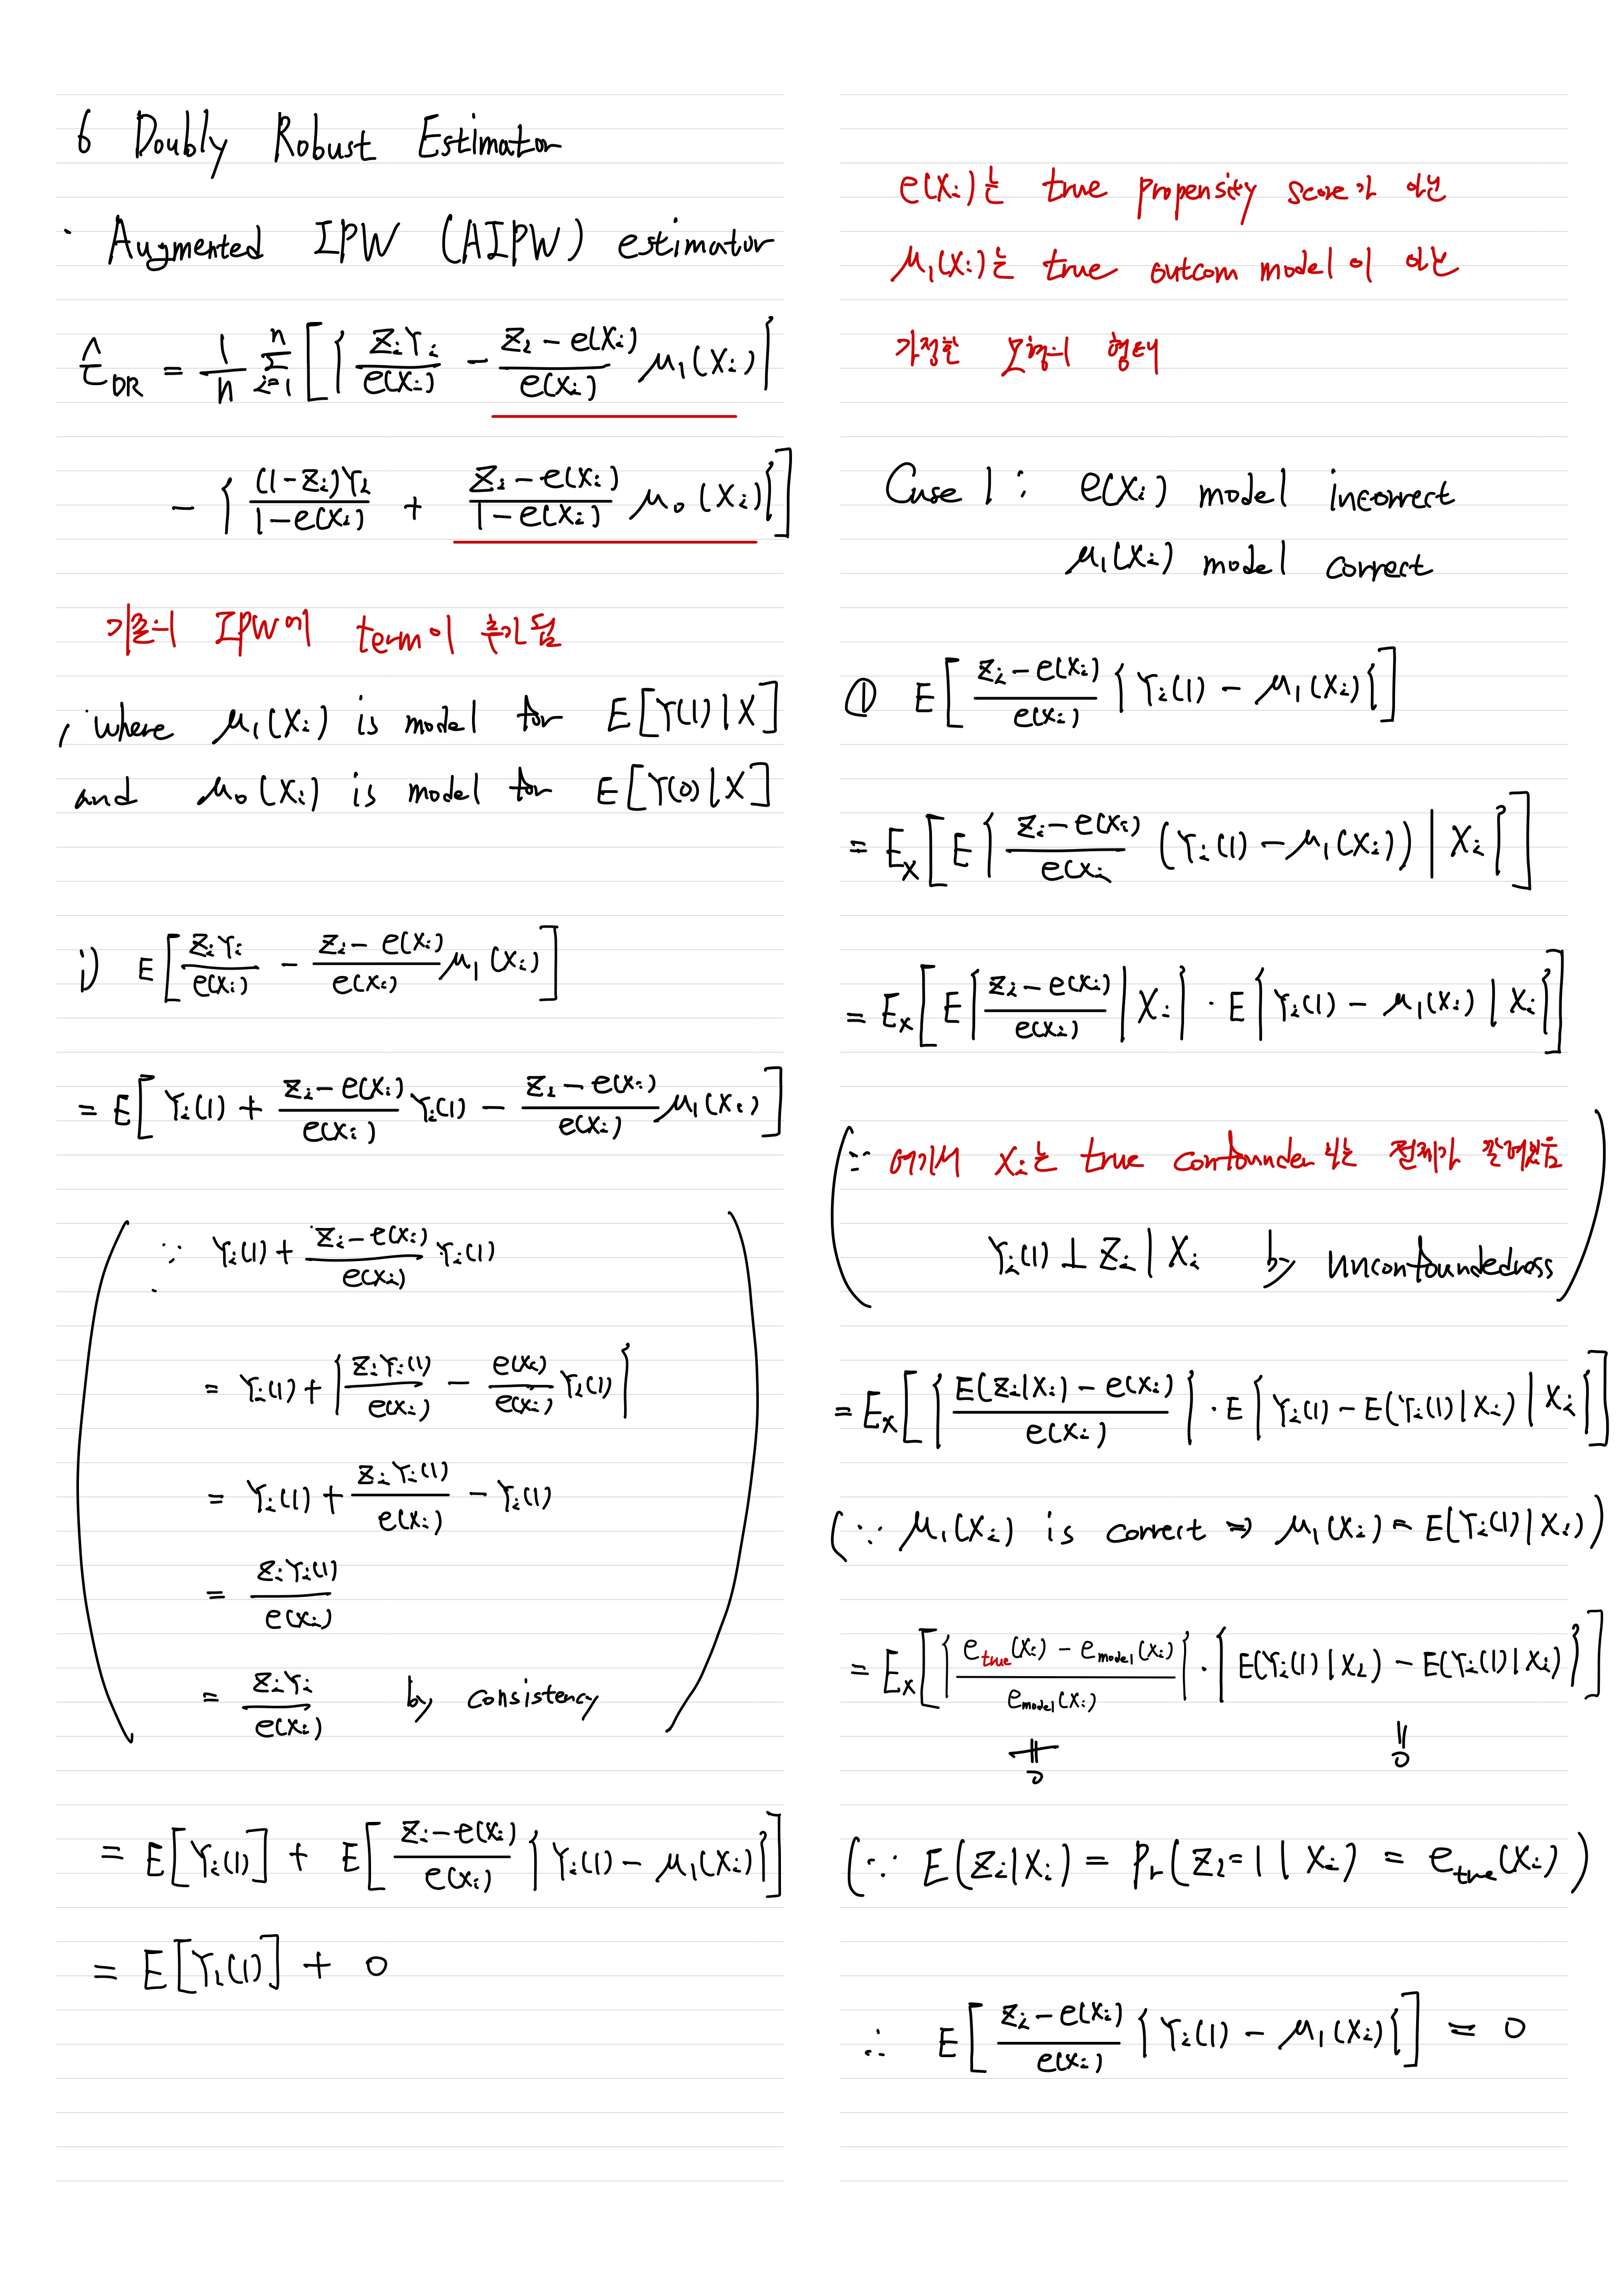 6 Doubly Robust Estimator
· Augmented IPW (AIPW) estimator
τ̂_DR = 1/n Σ_{i=1}^{n} [ { Z_i Y_i / e(X_i) − (Z_i − e(X_i)) / e(X_i) μ_1(X_i) }
− { (1−Z_i)Y_i / (1−e(X_i)) + (Z_i − e(X_i)) / (1−e(X_i)) μ_0(X_i) } ]
기존의 IPW에 term이 추가됨
, where μ_1(X_i) is model for E[Y(1)|X]
and μ_0(X_i) is model for E[Y(0)|X]
i) E[ Z_i Y_i / e(X_i) − (Z_i − e(X_i)) / e(X_i) μ_1(X_i) ]
= E[ Y_i(1) + (Z_i − e(X_i)) / e(X_i) Y_i(1) − (Z_i − e(X_i)) / e(X_i) μ_1(X_i) ]
( ∵ Y_i(1) + (Z_i − e(X_i)) / e(X_i) Y_i(1)
= Y_i(1) + { Z_i Y_i(1) / e(X_i) − e(X_i) / e(X_i) Y_i(1) }
= Y_i(1) + Z_i Y_i(1) / e(X_i) − Y_i(1)
= Z_i Y_i(1) / e(X_i)
= Z_i Y_i / e(X_i) by consistency )
= E[Y_i(1)] + E[ (Z_i − e(X_i)) / e(X_i) { Y_i(1) − μ_1(X_i) } ]
= E[Y_i(1)] + 0
e(X_i)는 true propensity score가 아닌
μ_1(X_i)는 true outcom model이 아닌
가정한 모형의 형태
Case 1 : e(X_i) model incorrect
μ_1(X_i) model correct
① E[ (Z_i − e(X_i)) / e(X_i) { Y_i(1) − μ_1(X_i) } ]
= E_X[ E{ (Z_i − e(X_i)) / e(X_i) (Y_i(1) − μ_1(X_i)) | X_i } ]
= E_X[ E{ (Z_i − e(X_i)) / e(X_i) | X_i } · E{ Y_i(1) − μ_1(X_i) | X_i } ]
( ∵ 여기서 X_i는 true confounder라는 전제가 깔려있음
Y_i(1) ⊥ Z_i | X_i by unconfoundedness )
= E_X[ { (E(Z_i|X_i) − e(X_i)) / e(X_i) } · E{ Y_i(1) − E(Y_i(1)|X_i) | X_i } ]
( ∵ μ_1(X_i) is correct ⇒ μ_1(X_i) = E(Y_i(1)|X_i) )
= E_X[ { (e_true(X_i) − e_model(X_i)) / e_model(X_i) } · { E(Y_i(1)|X_i) − E(Y_i(1)|X_i) } ]
≠ 0 = 0
( ∵ E(Z_i|X_i) = Pr(Z_i=1 | X_i) = e_true(X_i) )
∴ E[ (Z_i − e(X_i)) / e(X_i) { Y_i(1) − μ_1(X_i) } ] = 0